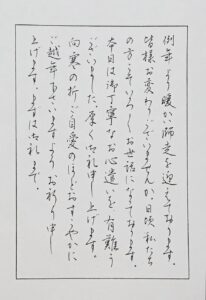 例年より暖かい師走を迎えております。
皆様お変わりございませんか。日頃私たち
の方こそいろいろとお世話になっております。
本日は御丁寧なお心遣いを有難う
ございました。厚く御礼申し上げます。
向寒の折ご自愛のほどおすこやかに
ご越年なさいますようお祈り申し
上げます。まずは御礼まで。